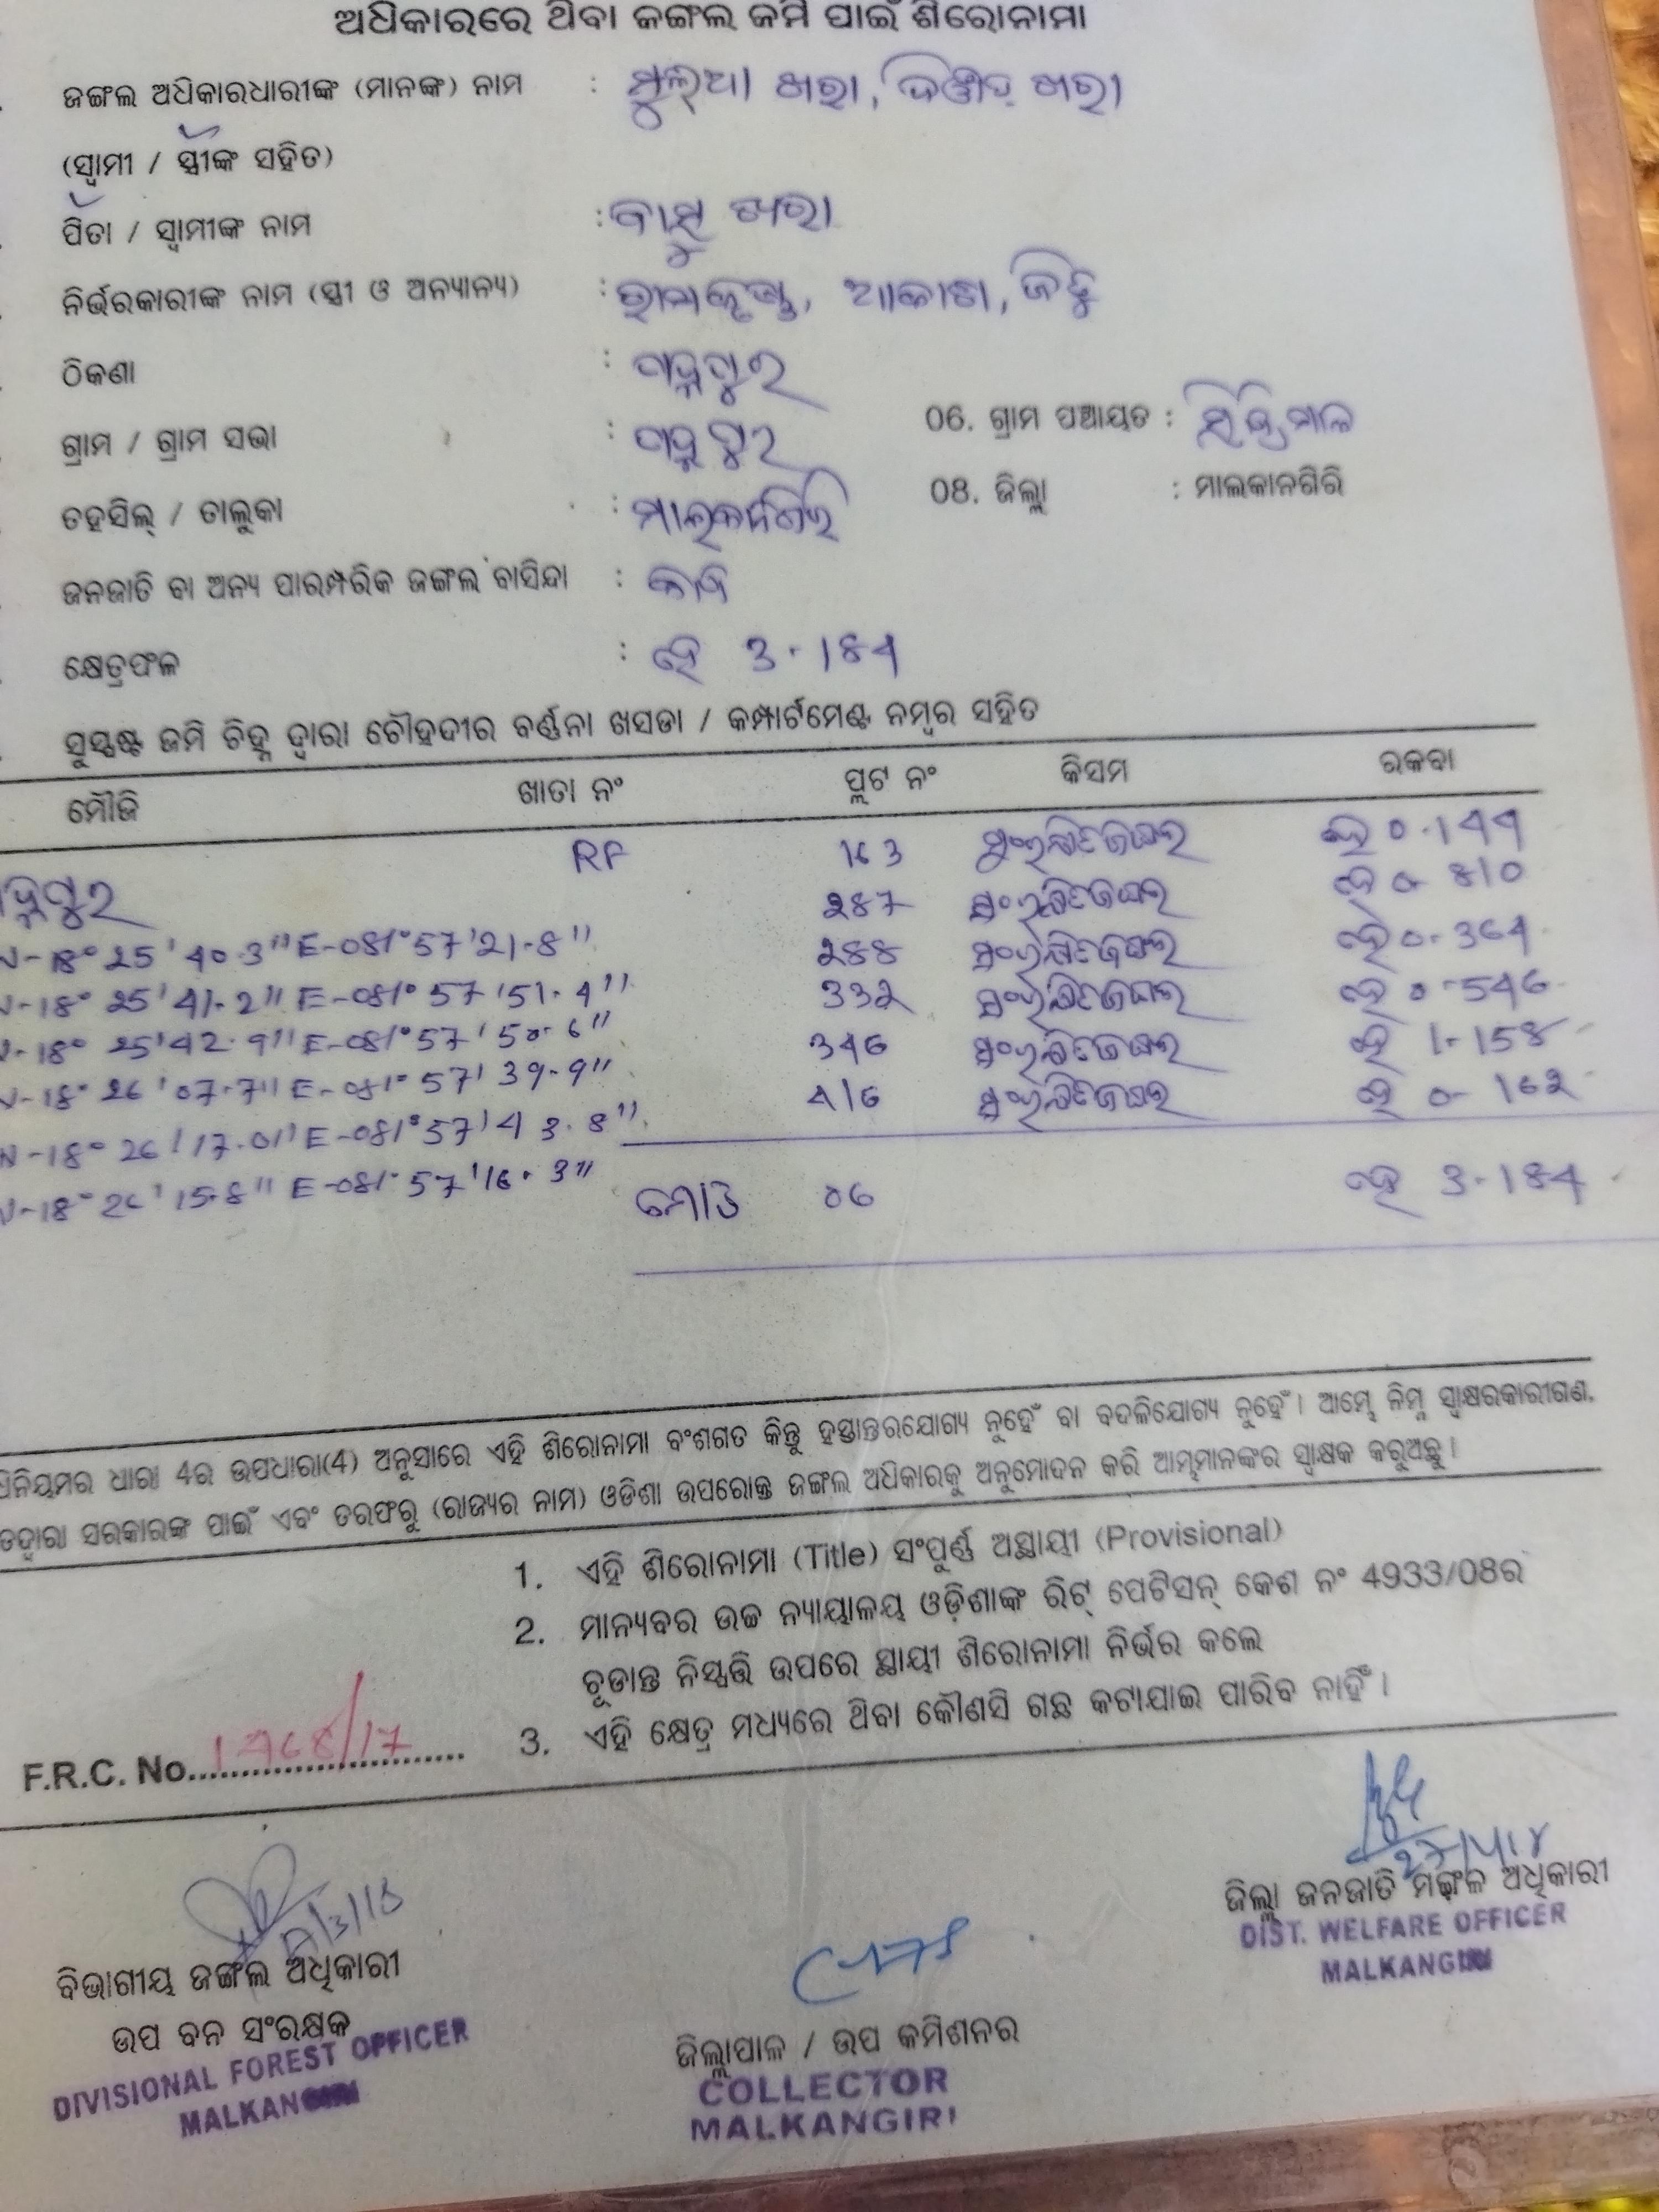 ଅଧିକାରରେ ଥିବା ଜଙ୍ଗଲ ଜମି ପାଇଁ ଶିରୋନାମା
ଜଙ୍ଗଲ ଅଧିକାରଧାରୀଙ୍କ (ମାନଙ୍କ) ନାମ : ଖରା, ଖରା
(ସ୍ୱାମୀ / ସ୍ତ୍ରୀଙ୍କ ସହିତ)
ପିତା / ସ୍ୱାମୀଙ୍କ ନାମ : ବାସୁ ଖରା
ନିର୍ଭରକାରୀଙ୍କ ନାମ (ସ୍ତ୍ରୀ ଓ ଅନ୍ୟାନ୍ୟ) : ରାମକୃଷ୍ଣ, ଆକାଶ, ଜିତୁ
ଠିକଣା : ପଦ୍ମପୁର
ଗ୍ରାମ / ଗ୍ରାମ ସଭା : ପଦ୍ମପୁର 06. ଗ୍ରାମ ପଞ୍ଚାୟତ :
ତହସିଲ୍ / ତାଲୁକା : ମାଲକାନଗିରି 08. ଜିଲ୍ଲା : ମାଲକାନଗିରି
ଜନଜାତି ବା ଅନ୍ୟ ପାରମ୍ପରିକ ଜଙ୍ଗଲ ବାସିନ୍ଦା :
କ୍ଷେତ୍ରଫଳ : ହେ 3.184
ସୁସ୍ପଷ୍ଟ ଜମି ଚିହ୍ନ ଦ୍ୱାରା ଚୌହଦୀର ବର୍ଣ୍ଣନା ଖସଡା / କମ୍ପାର୍ଟମେଣ୍ଟ ନମ୍ବର ସହିତ
ମୌଜି ଖାତା ନଂ ପ୍ଲଟ ନଂ କିସମ ରକବା
RF 163 ହେ 0.144
287 ହେ 0.810
N-18° 25' 40.3" E-081° 57' 21.8" 288 ହେ 0.364
N-18° 25' 41.2" E-081° 57' 51.4" 332 ହେ 0.546
N-18° 25' 42.9" E-081° 57' 50.6" 346 ହେ 1.158
N-18° 26' 07.7" E-081° 57' 39.9" 416 ହେ 0.162
N-18° 26' 17.0" E-081° 57' 43.8"
N-18° 26' 15.8" E-081° 57' 16.3" ମୋଟ 06 ହେ 3.184
ଧିନିୟମର ଧାରା 4ର ଉପଧାରା(4) ଅନୁସାରେ ଏହି ଶିରୋନାମା ବଂଶଗତ କିନ୍ତୁ ହସ୍ତାନ୍ତରଯୋଗ୍ୟ ନୁହେଁ ବା ବଦଳିଯୋଗ୍ୟ ନୁହେଁ । ଆମ୍ଭେ ନିମ୍ନ ସ୍ୱାକ୍ଷରକାରୀଗଣ,
ତଦ୍ୱାରା ସରକାରଙ୍କ ପାଇଁ ଏବଂ ତରଫରୁ (ରାଜ୍ୟର ନାମ) ଓଡିଶା ଉପରୋକ୍ତ ଜଙ୍ଗଲ ଅଧିକାରକୁ ଅନୁମୋଦନ କରି ଆମ୍ଭମାନଙ୍କର ସ୍ୱାକ୍ଷକ କରୁଅଛୁ ।
1. ଏହି ଶିରୋନାମା (Title) ସଂପୁର୍ଣ୍ଣ ଅସ୍ଥାୟୀ (Provisional)
2. ମାନ୍ୟବର ଉଚ୍ଚ ନ୍ୟାୟାଳୟ ଓଡ଼ିଶାଙ୍କ ରିଟ୍ ପେଟିସନ୍ କେଶ ନଂ 4933/08ର
ଚୂଡାନ୍ତ ନିସ୍ପତ୍ତି ଉପରେ ସ୍ଥାୟୀ ଶିରୋନାମା ନିର୍ଭର କଲେ
3. ଏହି କ୍ଷେତ୍ର ମଧ୍ୟରେ ଥିବା କୌଣସି ଗଛ କଟାଯାଇ ପାରିବ ନାହିଁ ।
F.R.C. No.
ଜିଲ୍ଲା ଜନଜାତି ମଙ୍ଗଳ ଅଧିକାରୀ
DIST. WELFARE OFFICER
MALKANGIRI
ବିଭାଗୀୟ ଜଙ୍ଗଲ ଅଧିକାରୀ
ଉପ ବନ ସଂରକ୍ଷକ
DIVISIONAL FOREST OFFICER
MALKANGIRI
ଜିଲ୍ଲାପାଳ / ଉପ କମିଶନର
COLLECTOR
MALKANGIRI